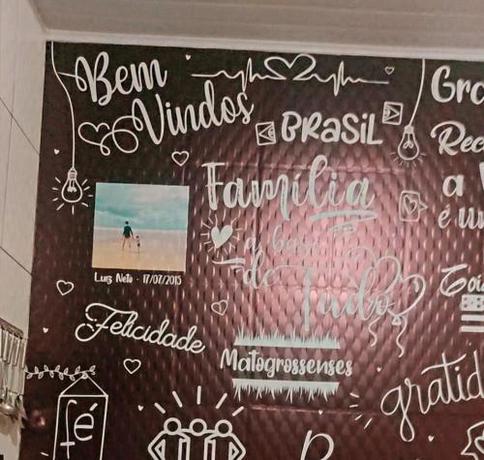 Bem
Vindos
BRASIL
Família
a base
de Tudo
Luiz Neto - 17/07/2015
Felicidade
Matogrossenses
fé
Gra
Rec
a
é um
gratid